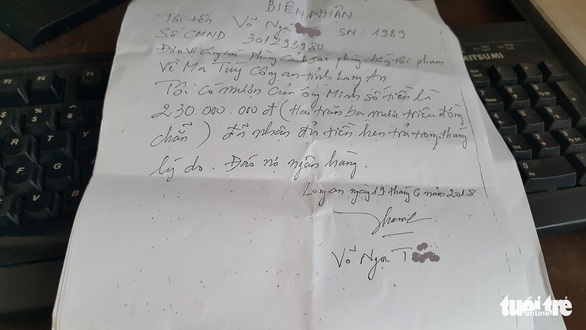 BIÊN NHẬN
Tôi tên Võ Ngọc SN : 1989
Số CMND : 301293980
Đơn vị công tác Phòng Cảnh sát phòng chống tội phạm
Về Ma Túy Công an tỉnh Long An
Tôi có mượn của ông Minh số tiền là
230.000.000đ (Hai trăm ba mươi triệu đồng
chẵn) đã nhận đủ tiền hẹn trả trong tháng
lý do : Đáo nợ ngân hàng.
Long an ngày 19 tháng 6 năm 2018
Võ Ngọc T
MITSUMI
tuổi trẻ
online